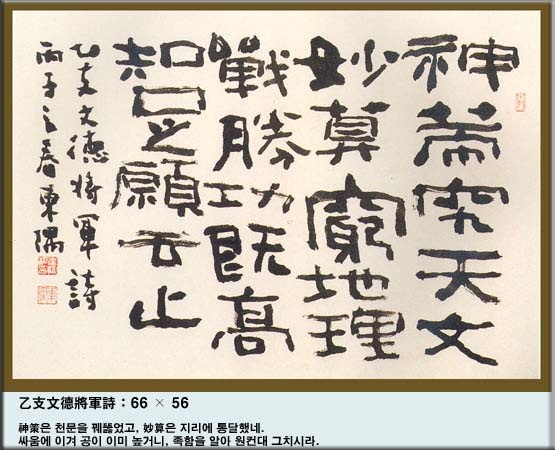 神策究天文
妙算窮地理
戰勝功既高
知足願云止
乙支文德将軍詩
丙子之春東隅
乙支文德將軍詩 : 66 × 56
神策은 천문을 꿰뚫었고, 妙算은 지리에 통달했네.
싸움에 이겨 공이 이미 높거니, 족함을 알아 원컨대 그치시라.